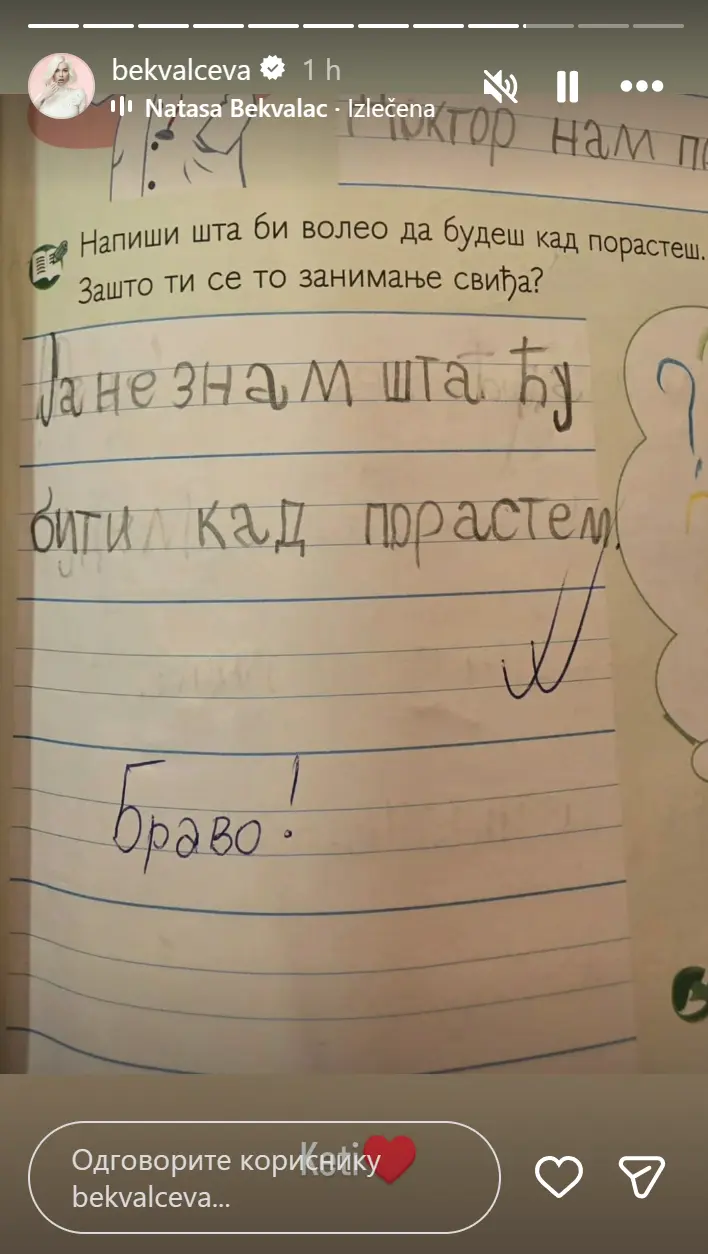 bekvalceva 1 h
Natasa Bekvalac · Izlečena
нам
Напиши шта би волео да будеш кад порастеш.
Зашто ти се то занимање свиђа?
Ја не знам шта ћу
бити кад порастем.
Браво!
Keti
Одговорите кориснику
bekvalceva...